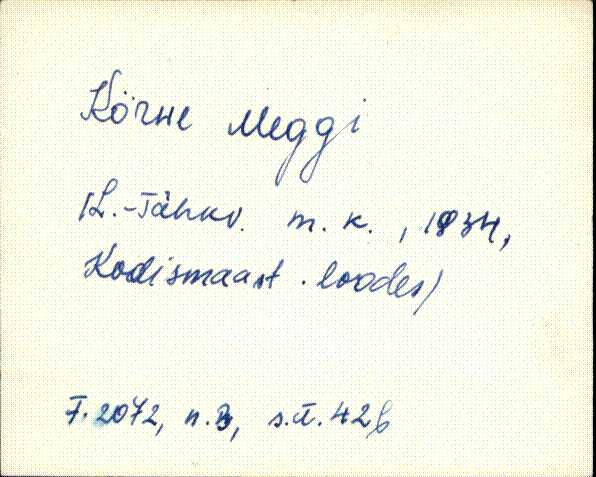 Kõrwe Meggi
(L.-Jährv. m. k., 1934,
Kodismaast loodes)
F. 2072, n. 3, s.ü. 426